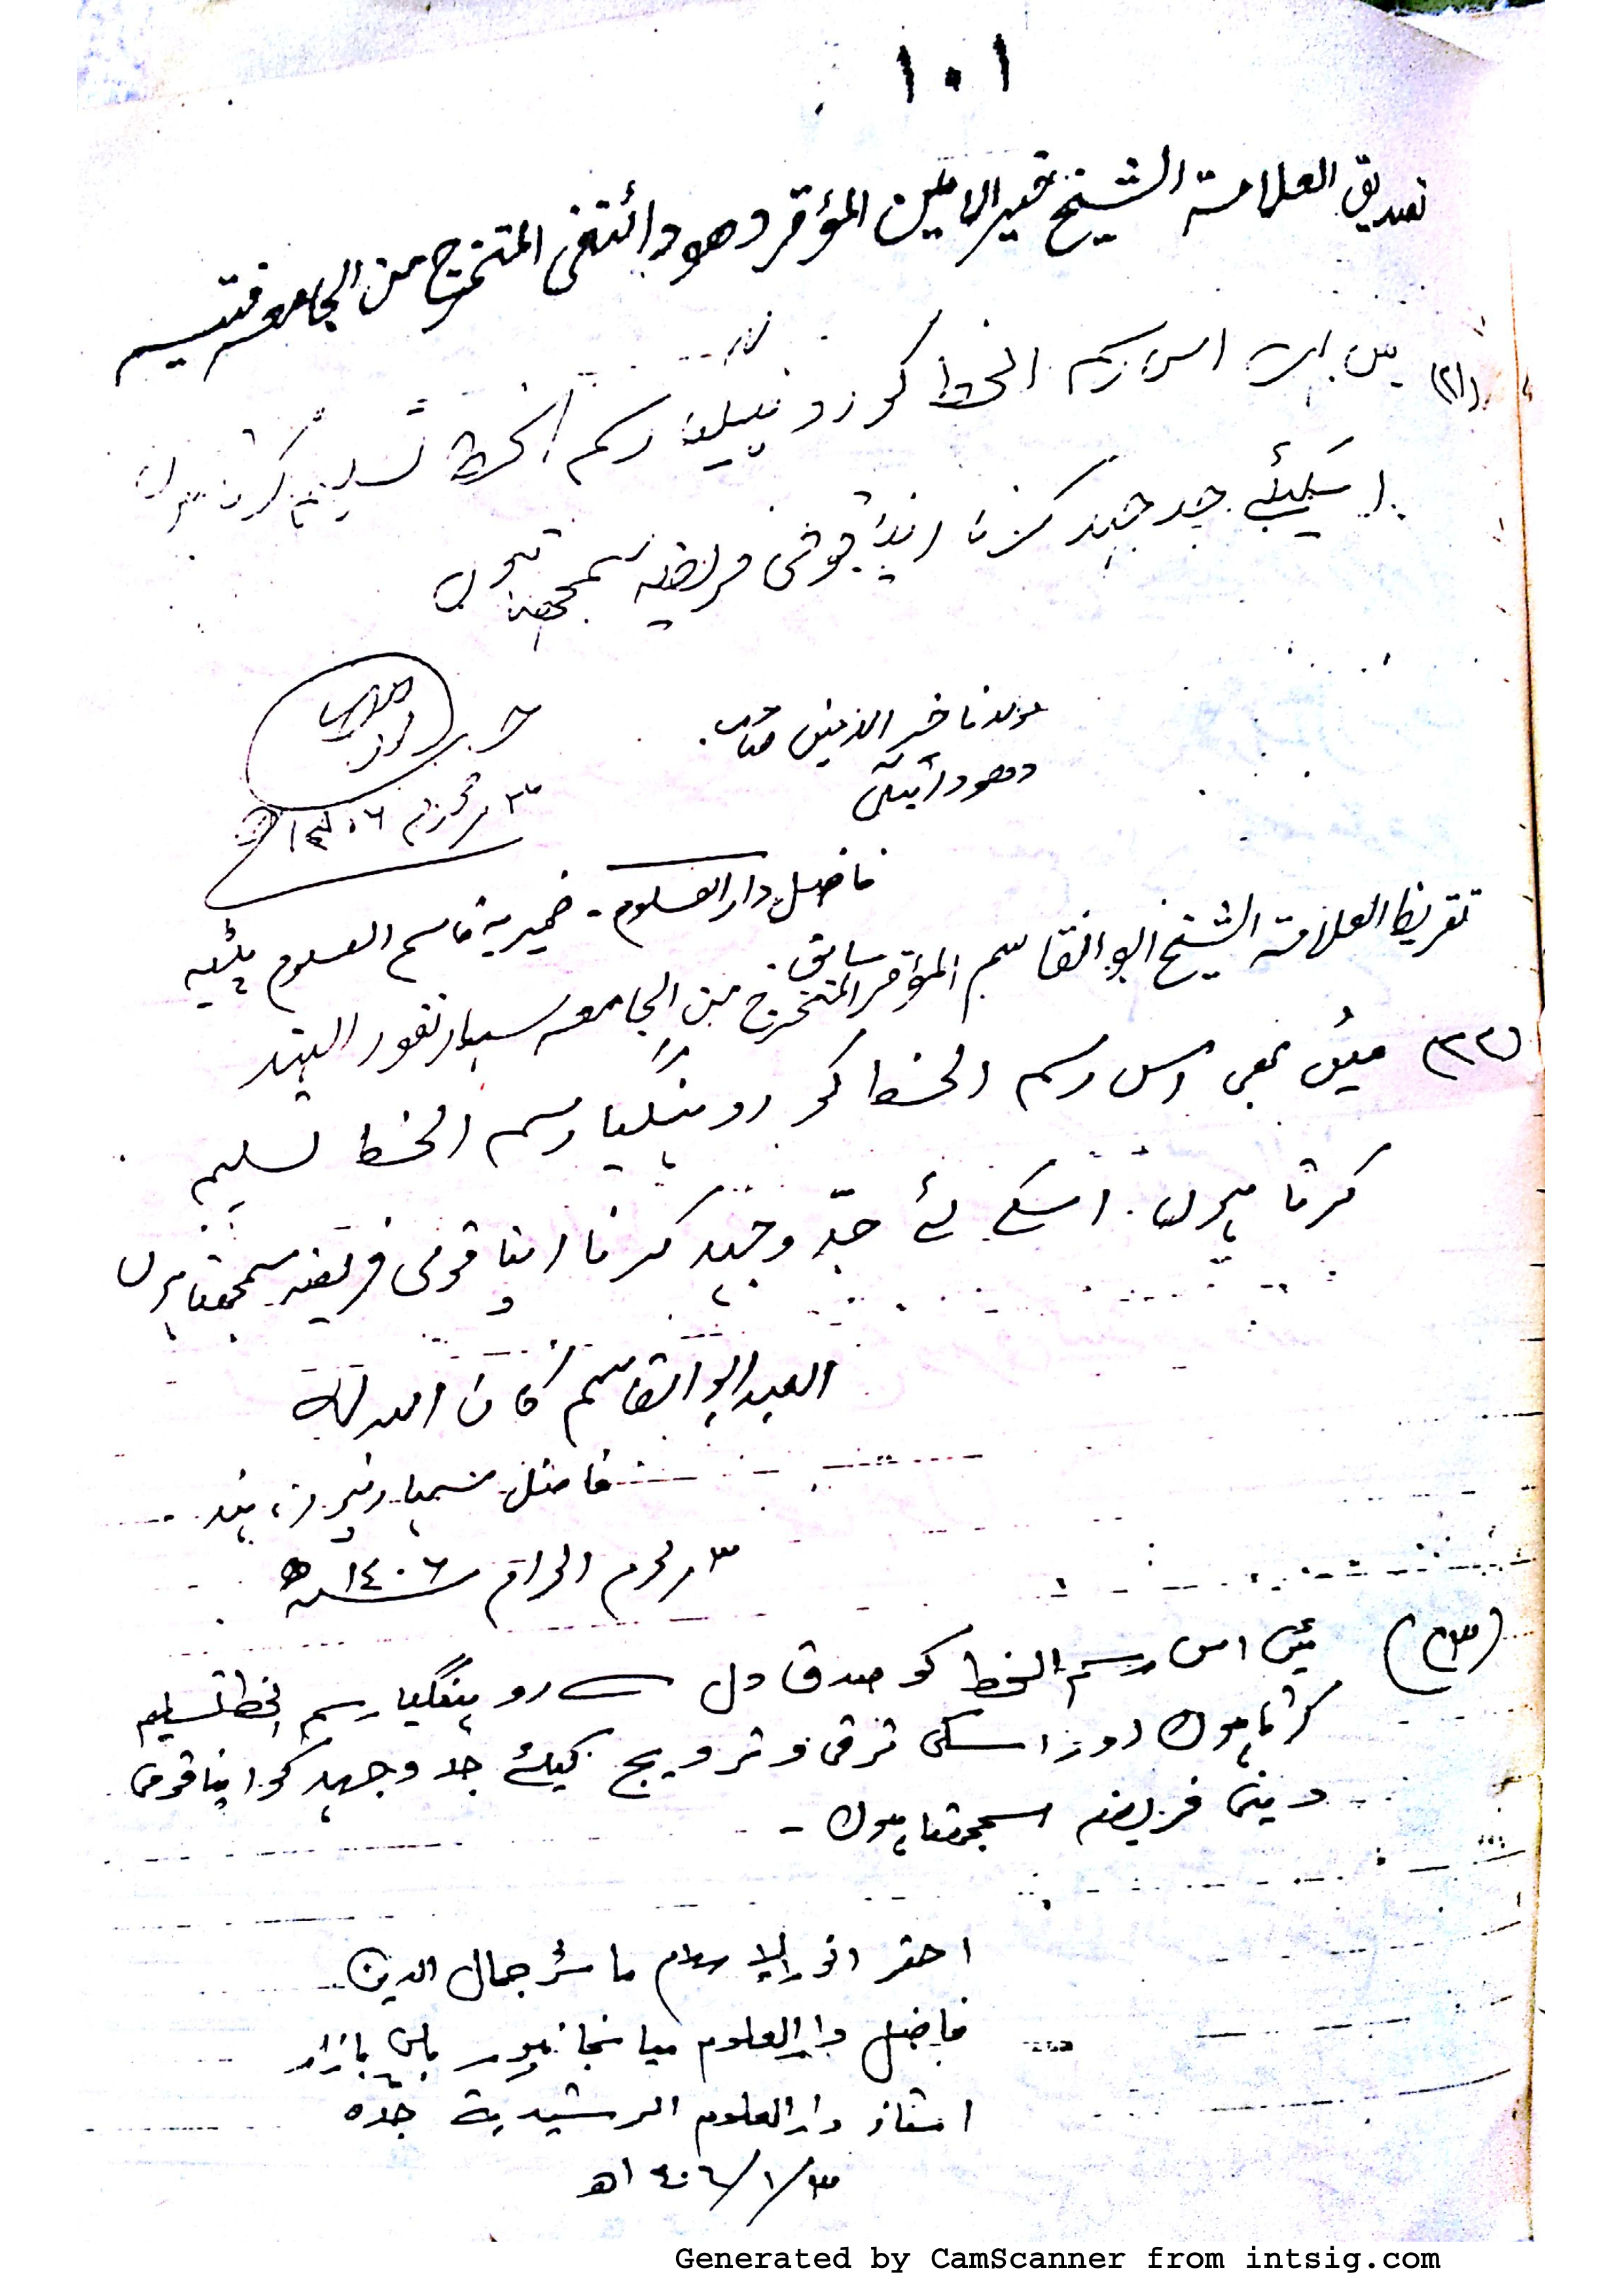 ١٠١
تصديق العلامة الشيخ خير الامين المؤقر المتخرج من الجامعه
(٢١) میں اس رسم الخط کو روہینگیا رسم الخط تسلیم کرتا ہوں
اسکیلئے جد جہد کرنا اپنا قومی فریضہ سمجھتا ہوں
مولانا خیر الامین صاحب
٣ محرم ١٤٠٦ھ
فاضل دار العلوم - ضمیریہ قاسم العلوم پٹیہ
تقريظ العلامة الشيخ ابو القاسم المؤقر المتخرج من الجامعه سہارنفور الہند
سابق
(٢٢) میں بھی اس رسم الخط کو روہنگیا رسم الخط تسلیم
کرتا ہوں. اسکے لئے جدّ وجہد کرنا اپنا قومی فریضہ سمجھتا ہوں
العبد ابو القاسم کان اللہ لہ
فاضل سہارنپور، ہند
٣ محرم الحرام ١٤٠٦ھ
(٢٣) میں اس رسم الخط کو صدق دل سے روہنگیا رسم الخط تسلیم
کرتا ہوں اور اسکی ترقی و ترویج کیلئے جد وجہد کو اپنا قومی
دینی فریضہ سمجھتا ہوں -
احقر انور الاسلام ماسٹر جمال الدین
فاضل دار العلوم میانجانپور بلی بازار
استاذ دار العلوم الرشیدیۃ جدّہ
٣/١/١٤٠٦ھ
Generated by CamScanner from intsig.com